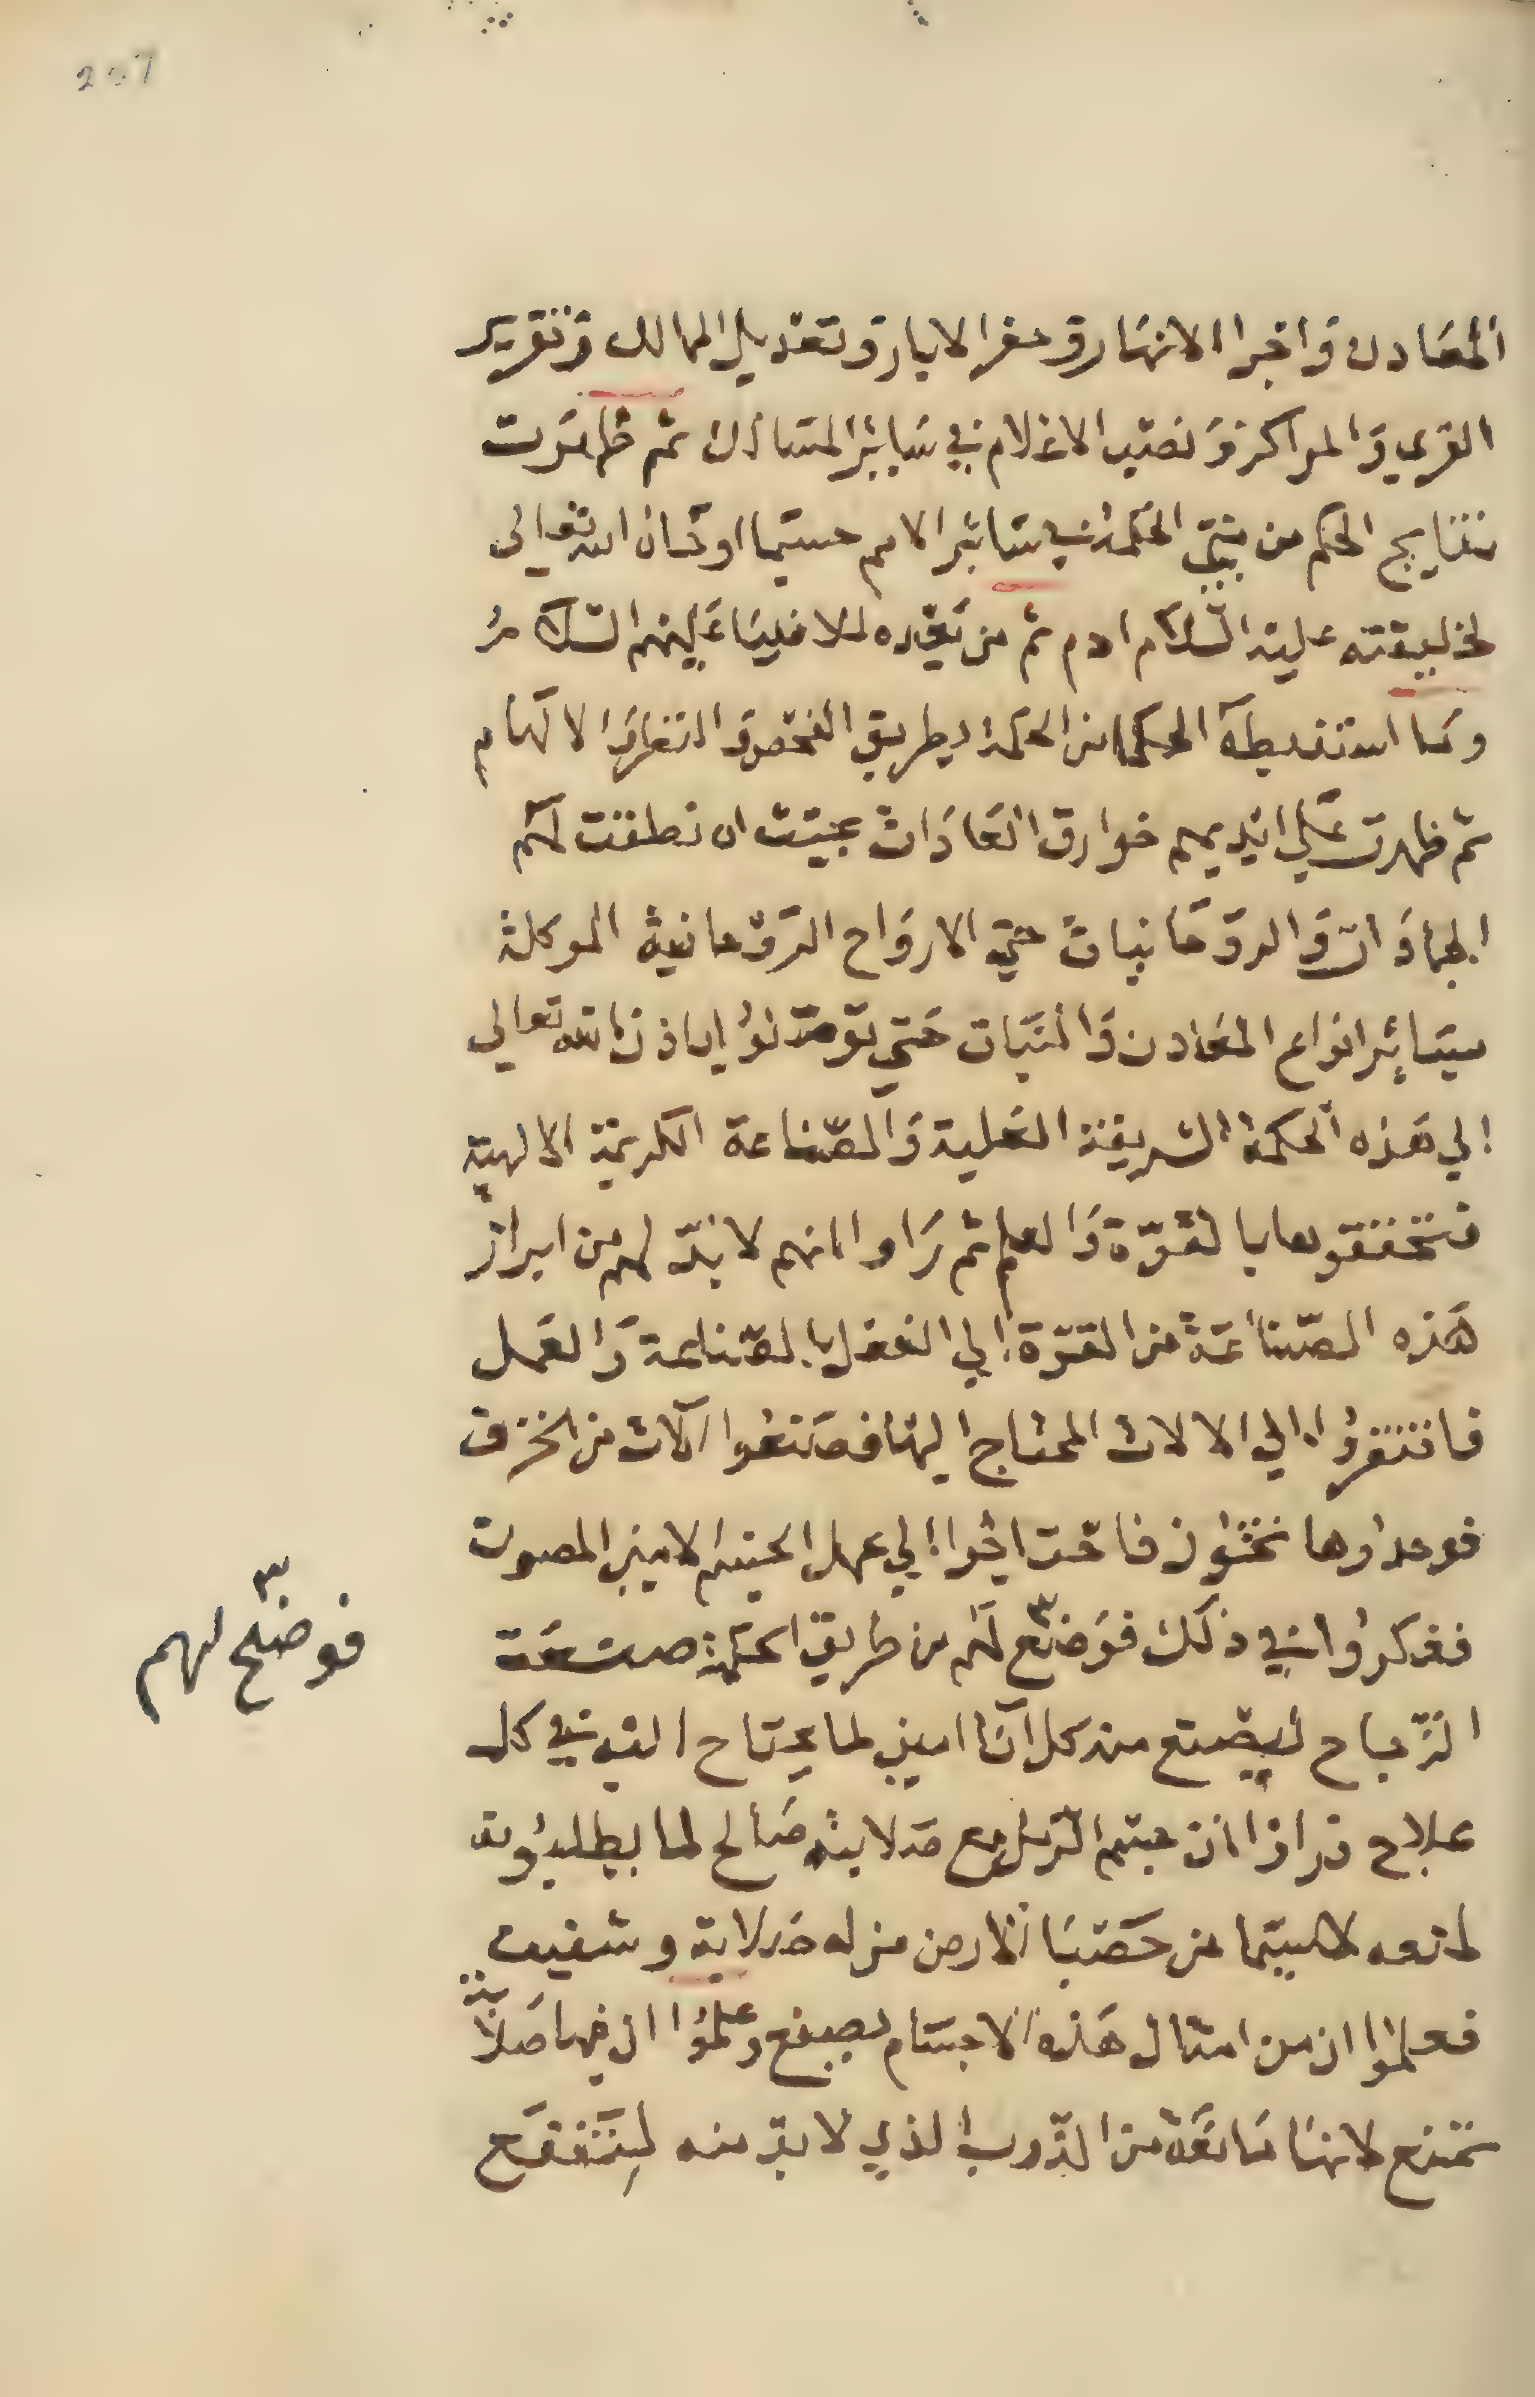 207
المعادن واجرا الانهار وحفر الابار وتعديل الممالك وتقرير
القري والمراكز ونصب الاعلام في ساير المسالك ثم ظهرت
نتايج الحكم من بيت الحكمة في ساير الامم حسبما اوحاه الله تعالى
لخليقته عليه السلام ادم ثم من بعده للانبيا عليهم السلام
وما استنبطه الحكما من الحكمة بطريق الفحص والنظر والالهام
ثم ظهرت علي ايديهم خوارق العادات بحيث ان نطقت لهم
الجمادات والروحانيات حتي الارواح الروحانية الموكلة
بساير انواع المعادن والنبات حتي توصلوا باذن الله تعالي
الي هذه الحكمة الشريفة العلية والصناعة الكريمة الالهية
فتحققوها بالقوة والعلم ثم راوا انهم لا بد لهم من ابراز
هذه الصناعة من القوة الي الفعل بالصناعة والعمل
فافتقروا الي الالات المحتاج اليها فصنعوا الات من الخزف
فوجدوها تخون فاحتاجوا الي عمل الجسم الامين المصون
ففكروا في ذلك فوضع لهم من طريق الحكمة صنعة
الزجاج ليصنع منه كل انا امين لما يحتاج اليه في كل
علاج فراوا ان جسم الرمل مع صلابته صالح لما يطلبونه
لمنعه لا سيما من حصبا الارض من له صلابة وشفيف
فعلموا ان من امثال هذه الاجسام يصنع وعلموا ان فيها صلابة
تمنع لانها مانعة من الذوب الذي لا بد منه لينتفع
فوضح لهم